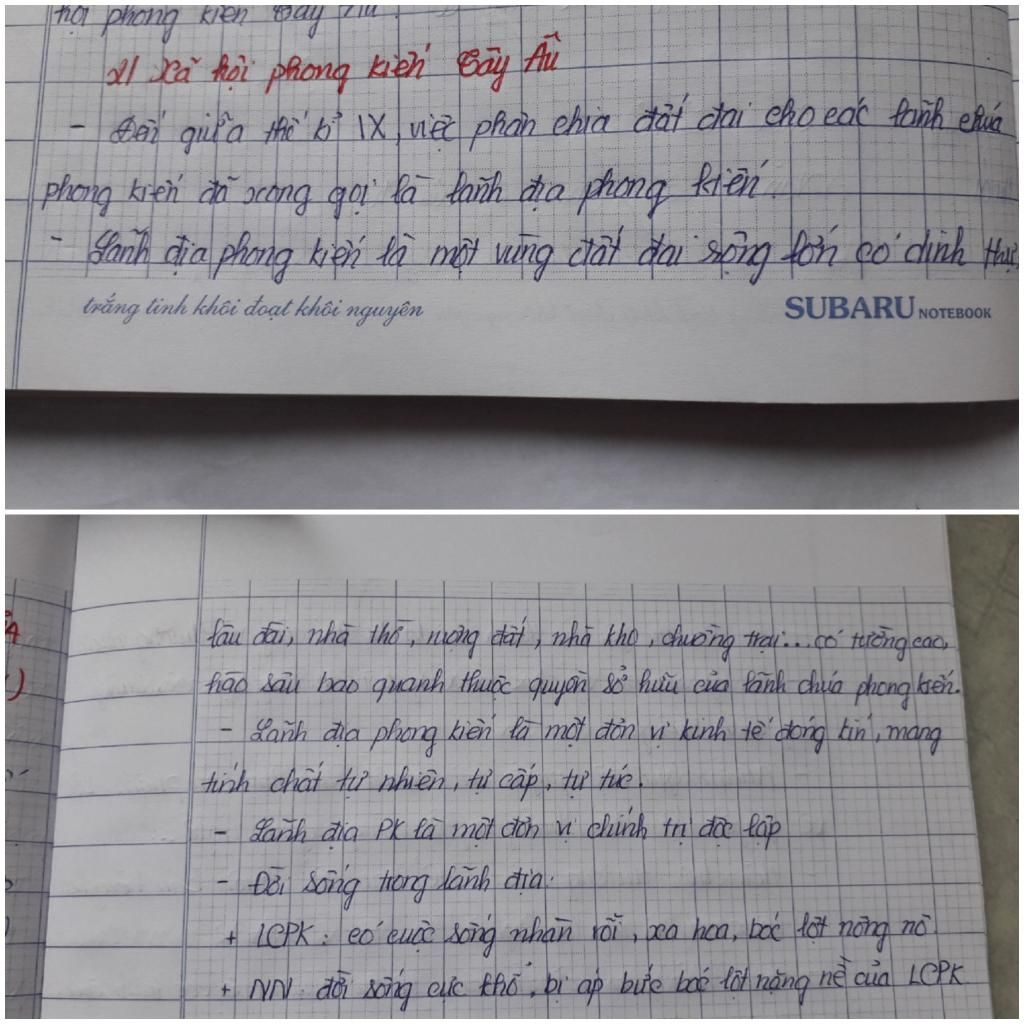 hội phong kiến Tây Âu.
2/ Xã hội phong kiến Tây Âu
- Đến giữa thế kỉ IX, việc phân chia đất đai cho các lãnh chúa
phong kiến đã xong gọi là lãnh địa phong kiến.
- Lãnh địa phong kiến là một vùng đất đai rộng lớn có dinh thự,
trắng tinh khôi đoạt khôi nguyên
SUBARU NOTEBOOK
lâu đài, nhà thờ, ruộng đất, nhà kho, chuồng trại... có tường cao,
hào sâu bao quanh thuộc quyền sở hữu của lãnh chúa phong kiến.
- Lãnh địa phong kiến là một đơn vị kinh tế đóng kín, mang
tính chất tự nhiên, tự cấp, tự túc.
- Lãnh địa PK là một đơn vị chính trị độc lập
- Đời sống trong lãnh địa:
+ LCPK: có cuộc sống nhàn rỗi, xa hoa, bóc lột nông nô
+ NN: đời sống cực khổ, bị áp bức bóc lột nặng nề của LCPK